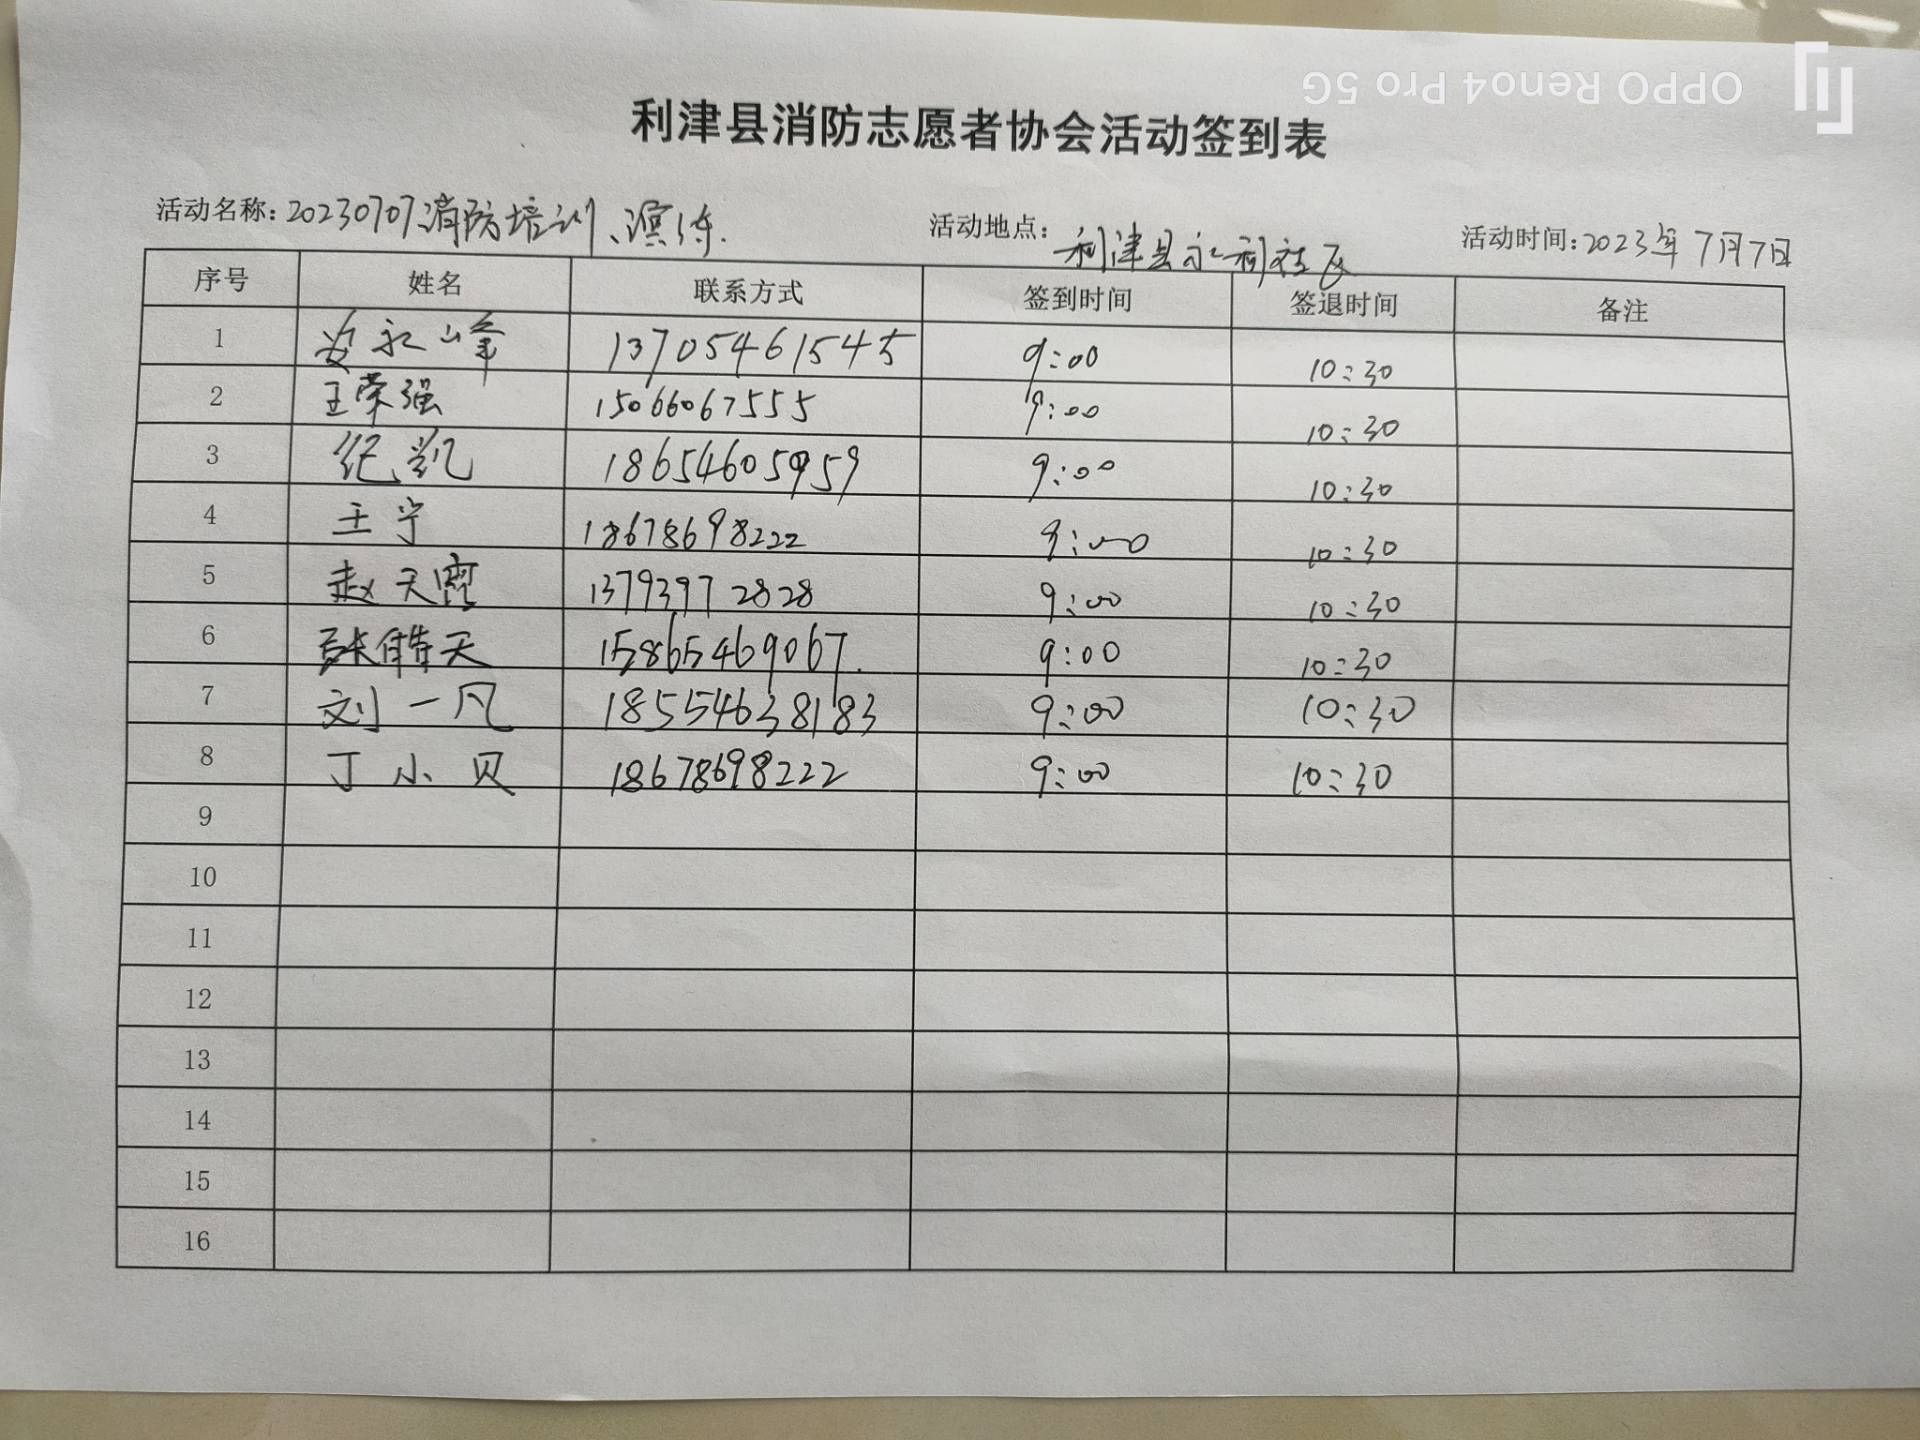 OPPO Reno4 Pro 5G
利津县消防志愿者协会活动签到表
活动名称:20230707消防培训、演练. 活动地点:利津县永利社区 活动时间:2023年7月7日
序号 姓名 联系方式 签到时间 签退时间 备注
1 安永峰 13705461545 9:00 10:30
2 王荣强 15066067555 9:00 10:30
3 纪凯 18654605959 9:00 10:30
4 王宁 18678698222 9:00 10:30
5 赵天 13793972828 9:00 10:30
6 张天 15865469067. 9:00 10:30
7 刘一凡 18554638183 9:00 10:30
8 丁小贝 18678698222 9:00 10:30
9
10
11
12
13
14
15
16